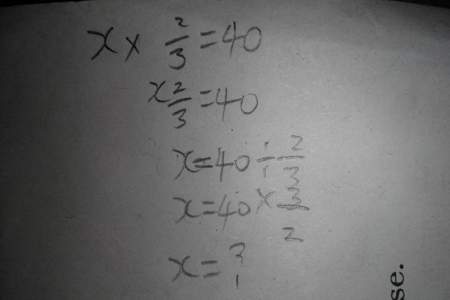 x × 2/3 = 40
x 2/3 = 40
x = 40 ÷ 2/3
x = 40 × 3/2
x = ?
se.